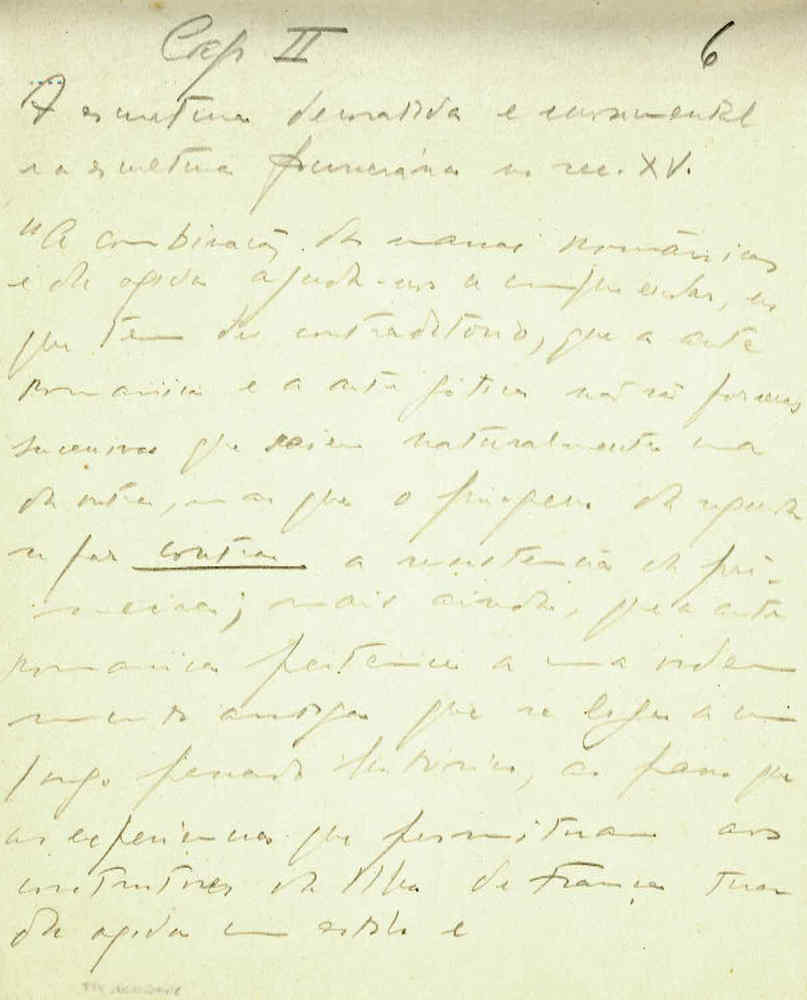 Cap II 6
A escultura decorativa e monumental
e a escultura funerária no sec. XV.
"A combinação da nave românica
e da ogiva ajuda-nos a compreender, no
que tem de contraditório, que a arte
romanica e a arte gótica não são formas
sucessivas que saiem naturalmente uma
da outra, mas que o progresso da segunda
se faz contra a resistencia da pri-
meira; mais ainda, que a arte
romanica pertence a uma ordem
muito antiga que se liga a um
longo passado historico, ao passo que
as experiencias que permitiram aos
construtores da Ilha de França tirar
da ogiva um estilo e